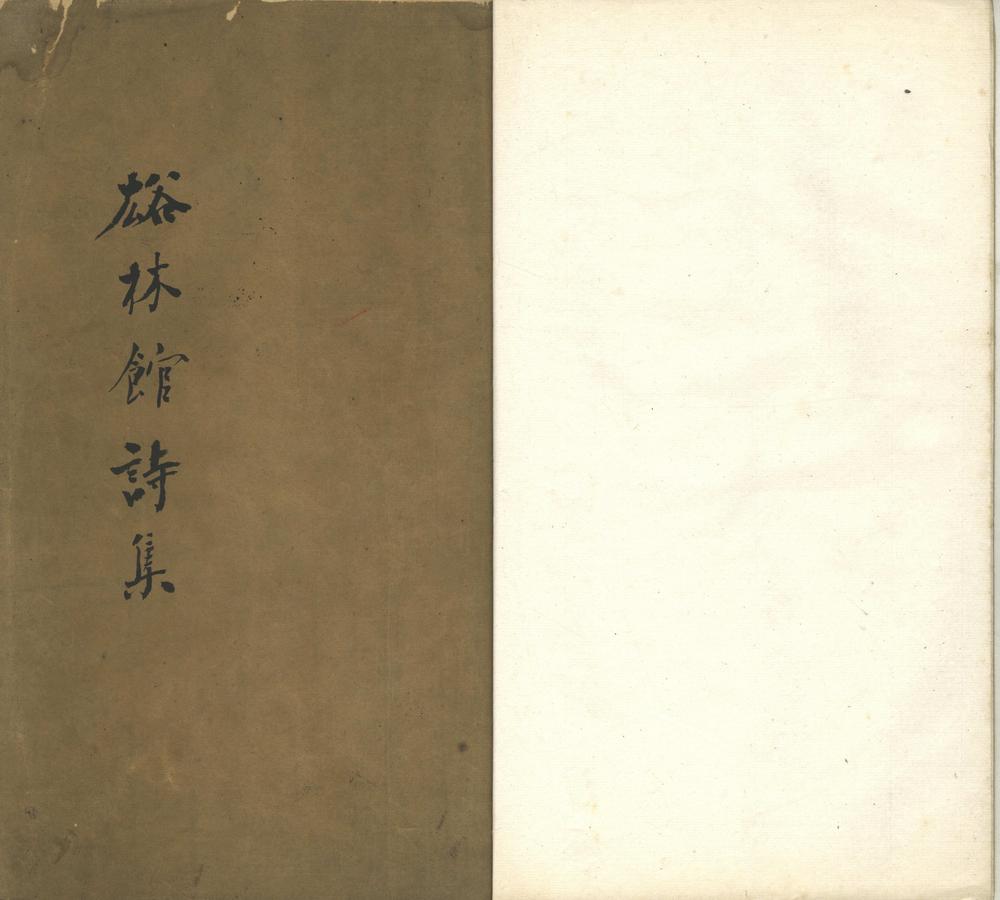 谹林館詩集